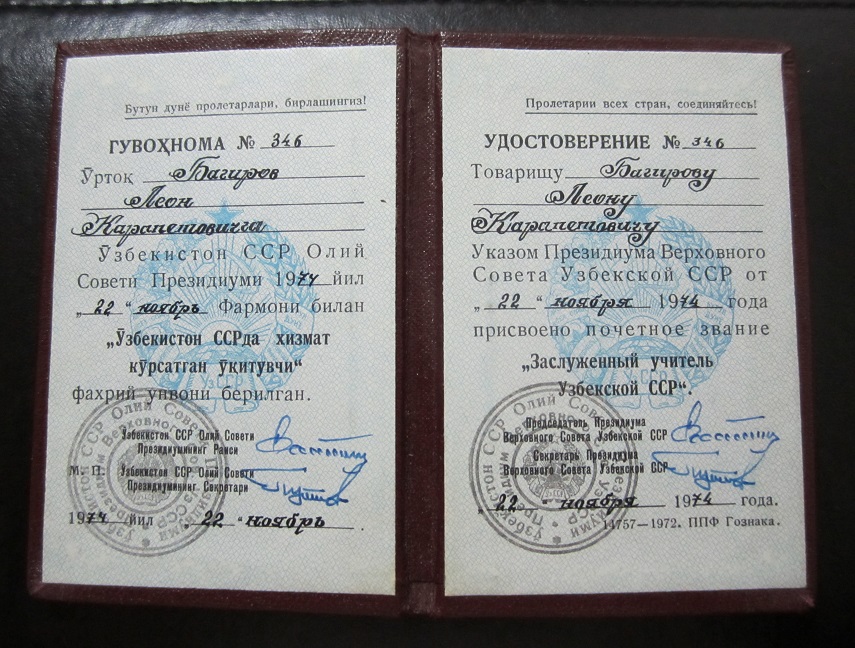 Бутун дунё пролетарлари, бирлашингиз!
ГУВОҲНОМА № 346
Ўртоқ Багиров
Леон
Карапетовичга
Ўзбекистон ССР Олий
Совети Президиуми 1974 йил
„22“ ноябрь Фармони билан
„Ўзбекистон ССРда хизмат
кўрсатган ўқитувчи“
фахрий унвони берилган.
Ўзбекистон ССР Олий Совети
Президиумининг Раиси
М. П. Ўзбекистон ССР Олий Совети
Президиумининг Секретари
1974 йил „22“ ноябрь.
Пролетарии всех стран, соединяйтесь!
УДОСТОВЕРЕНИЕ № 346
Товарищу Багирову
Леону
Карапетовичу
Указом Президиума Верховного
Совета Узбекской ССР от
„22“ ноября 1974 года
присвоено почетное звание
„Заслуженный учитель
Узбекской ССР“.
Председатель Президиума
Верховного Совета Узбекской ССР
Секретарь Президиума
Верховного Совета Узбекской ССР
„22“ ноября 1974 года.
14757—1972. ППФ Гознака.